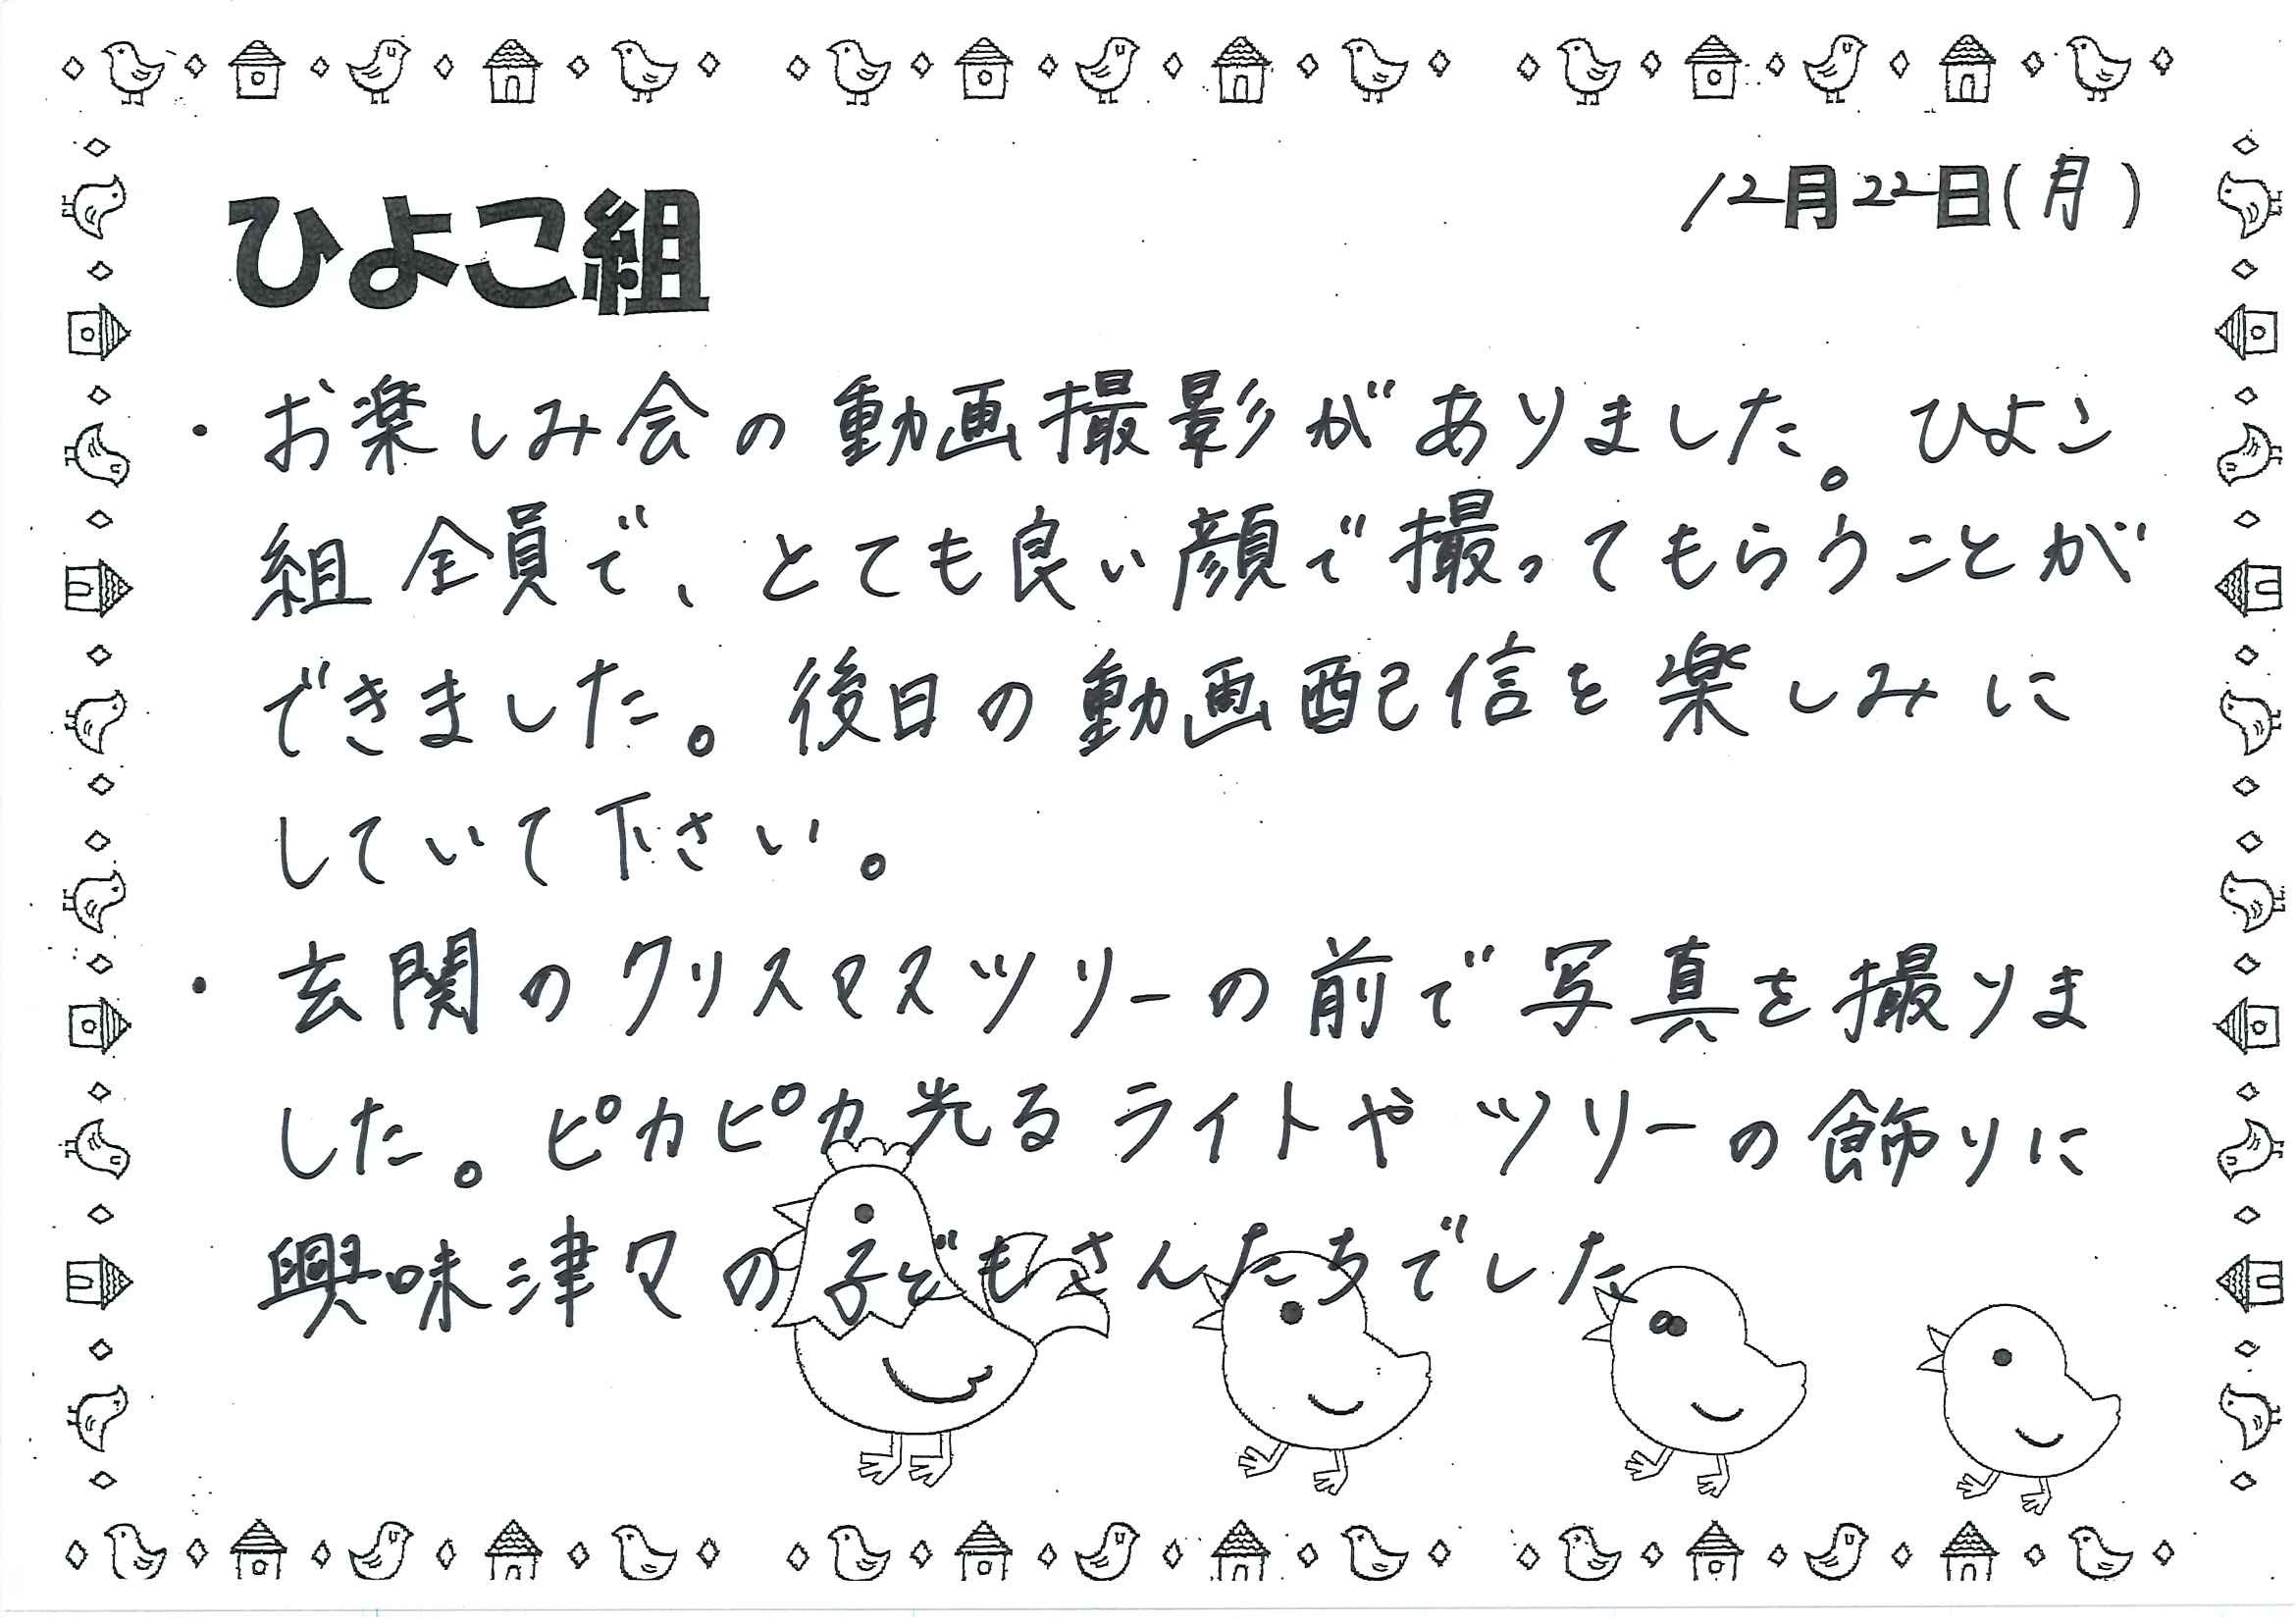 12月22日(月)
ひよこ組
・お楽しみ会の動画撮影がありました。ひよこ
組全員で、とても良い顔で撮ってもらうことが
できました。後日の動画配信を楽しみに
していて下さい。
・玄関のクリスマスツリーの前で写真を撮りま
した。ピカピカ光るライトやツリーの飾りに
興味津々の子どもさんたちでした。